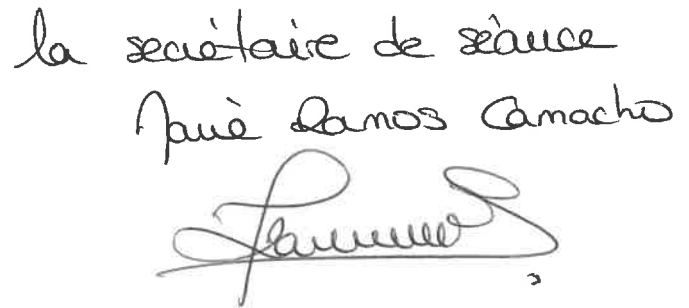 la secrétaire de séance
Ramos Camacho